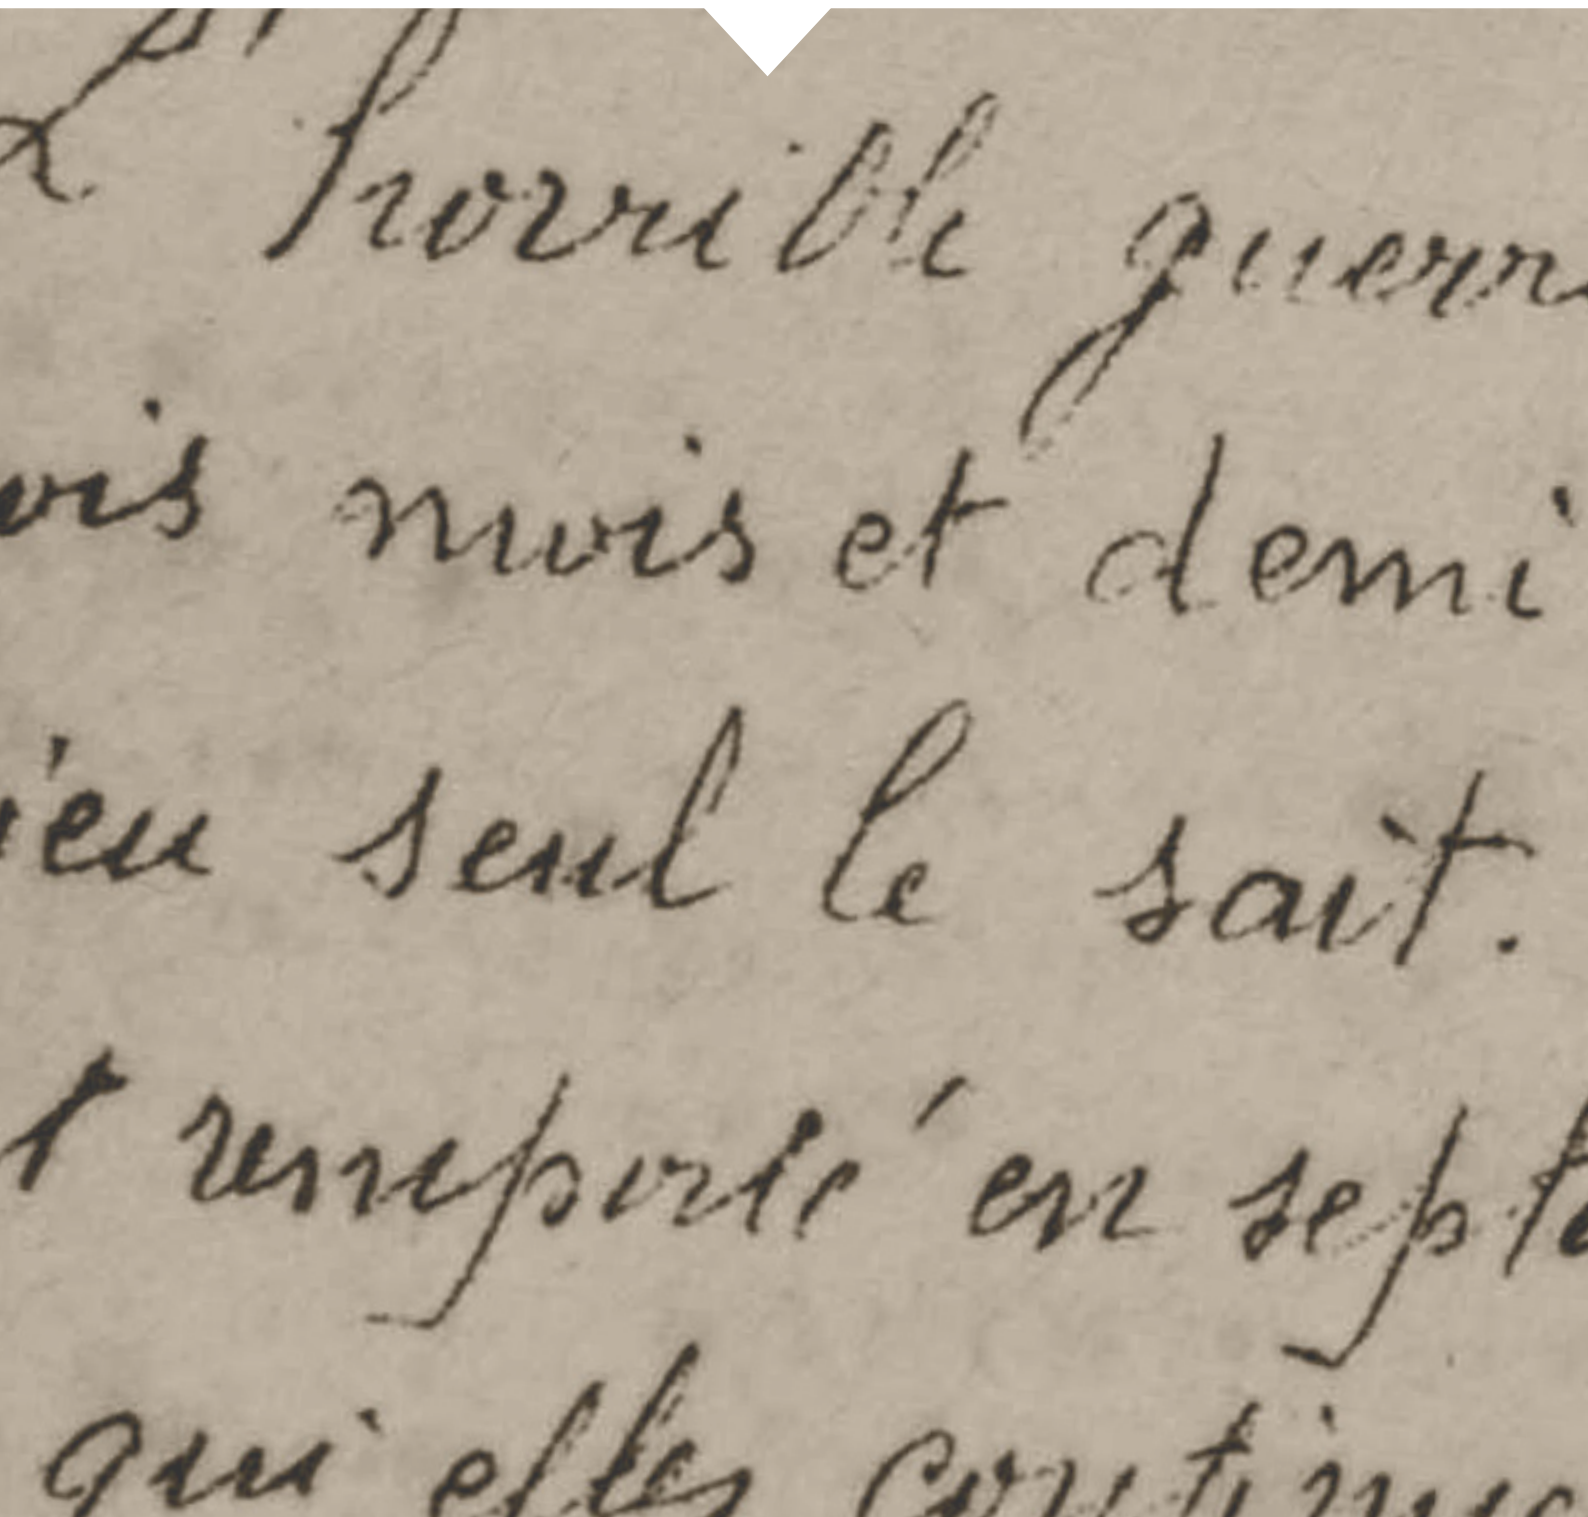 L'horrible guerr
ois mois et demi
ieu seul le sait.
t remporté en septe
qui elles continue